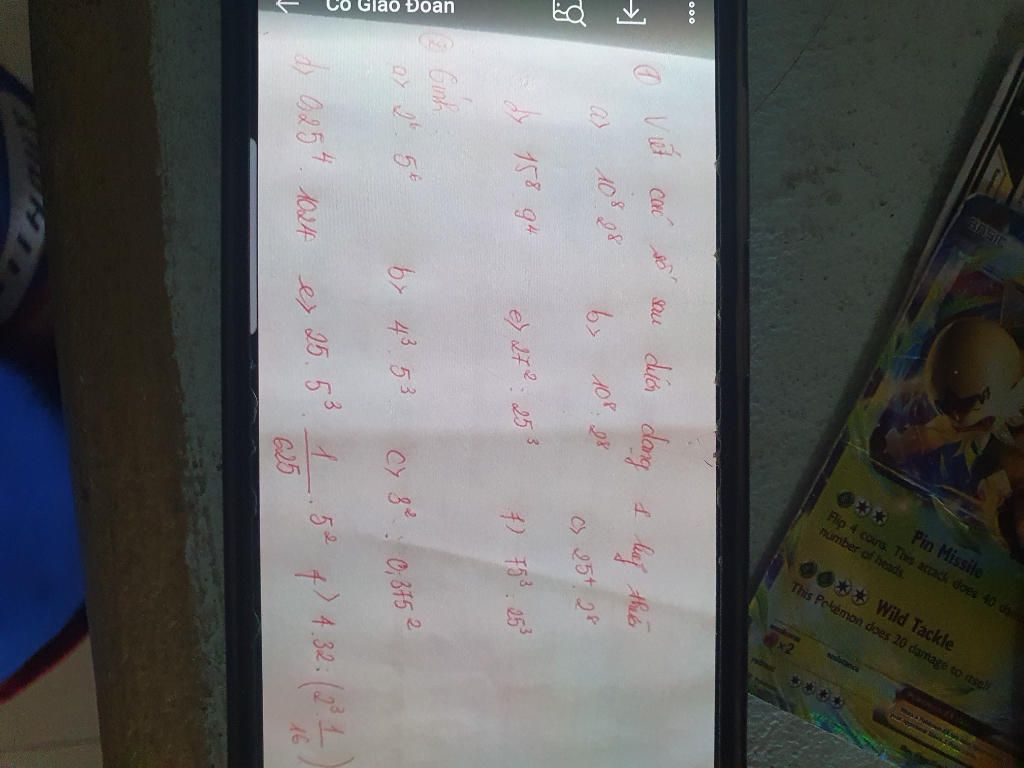 Cô Giáo Đoan
① Viết các số sau dưới dạng 1 luỹ thừa
a) 10⁸. 2⁸ b) 10⁸ : 2⁸ c) 25⁴. 2⁸
d) 15⁸. 9⁴ e) 27² : 25³ f) 75³ : 25³
② Tính
a) 2⁴. 5⁴ b) 4³. 5³ c) 3² : 0,375²
d) 0,25⁴. 1024 e) 25. 5³. 1/625. 5² f) 4.32 : (2³. 1/16)
BASIC
Pin Missile
Flip 4 coins. This attack does 40
number of heads.
Wild Tackle
This Pokémon does 20 damage to itself.
x2
resistance